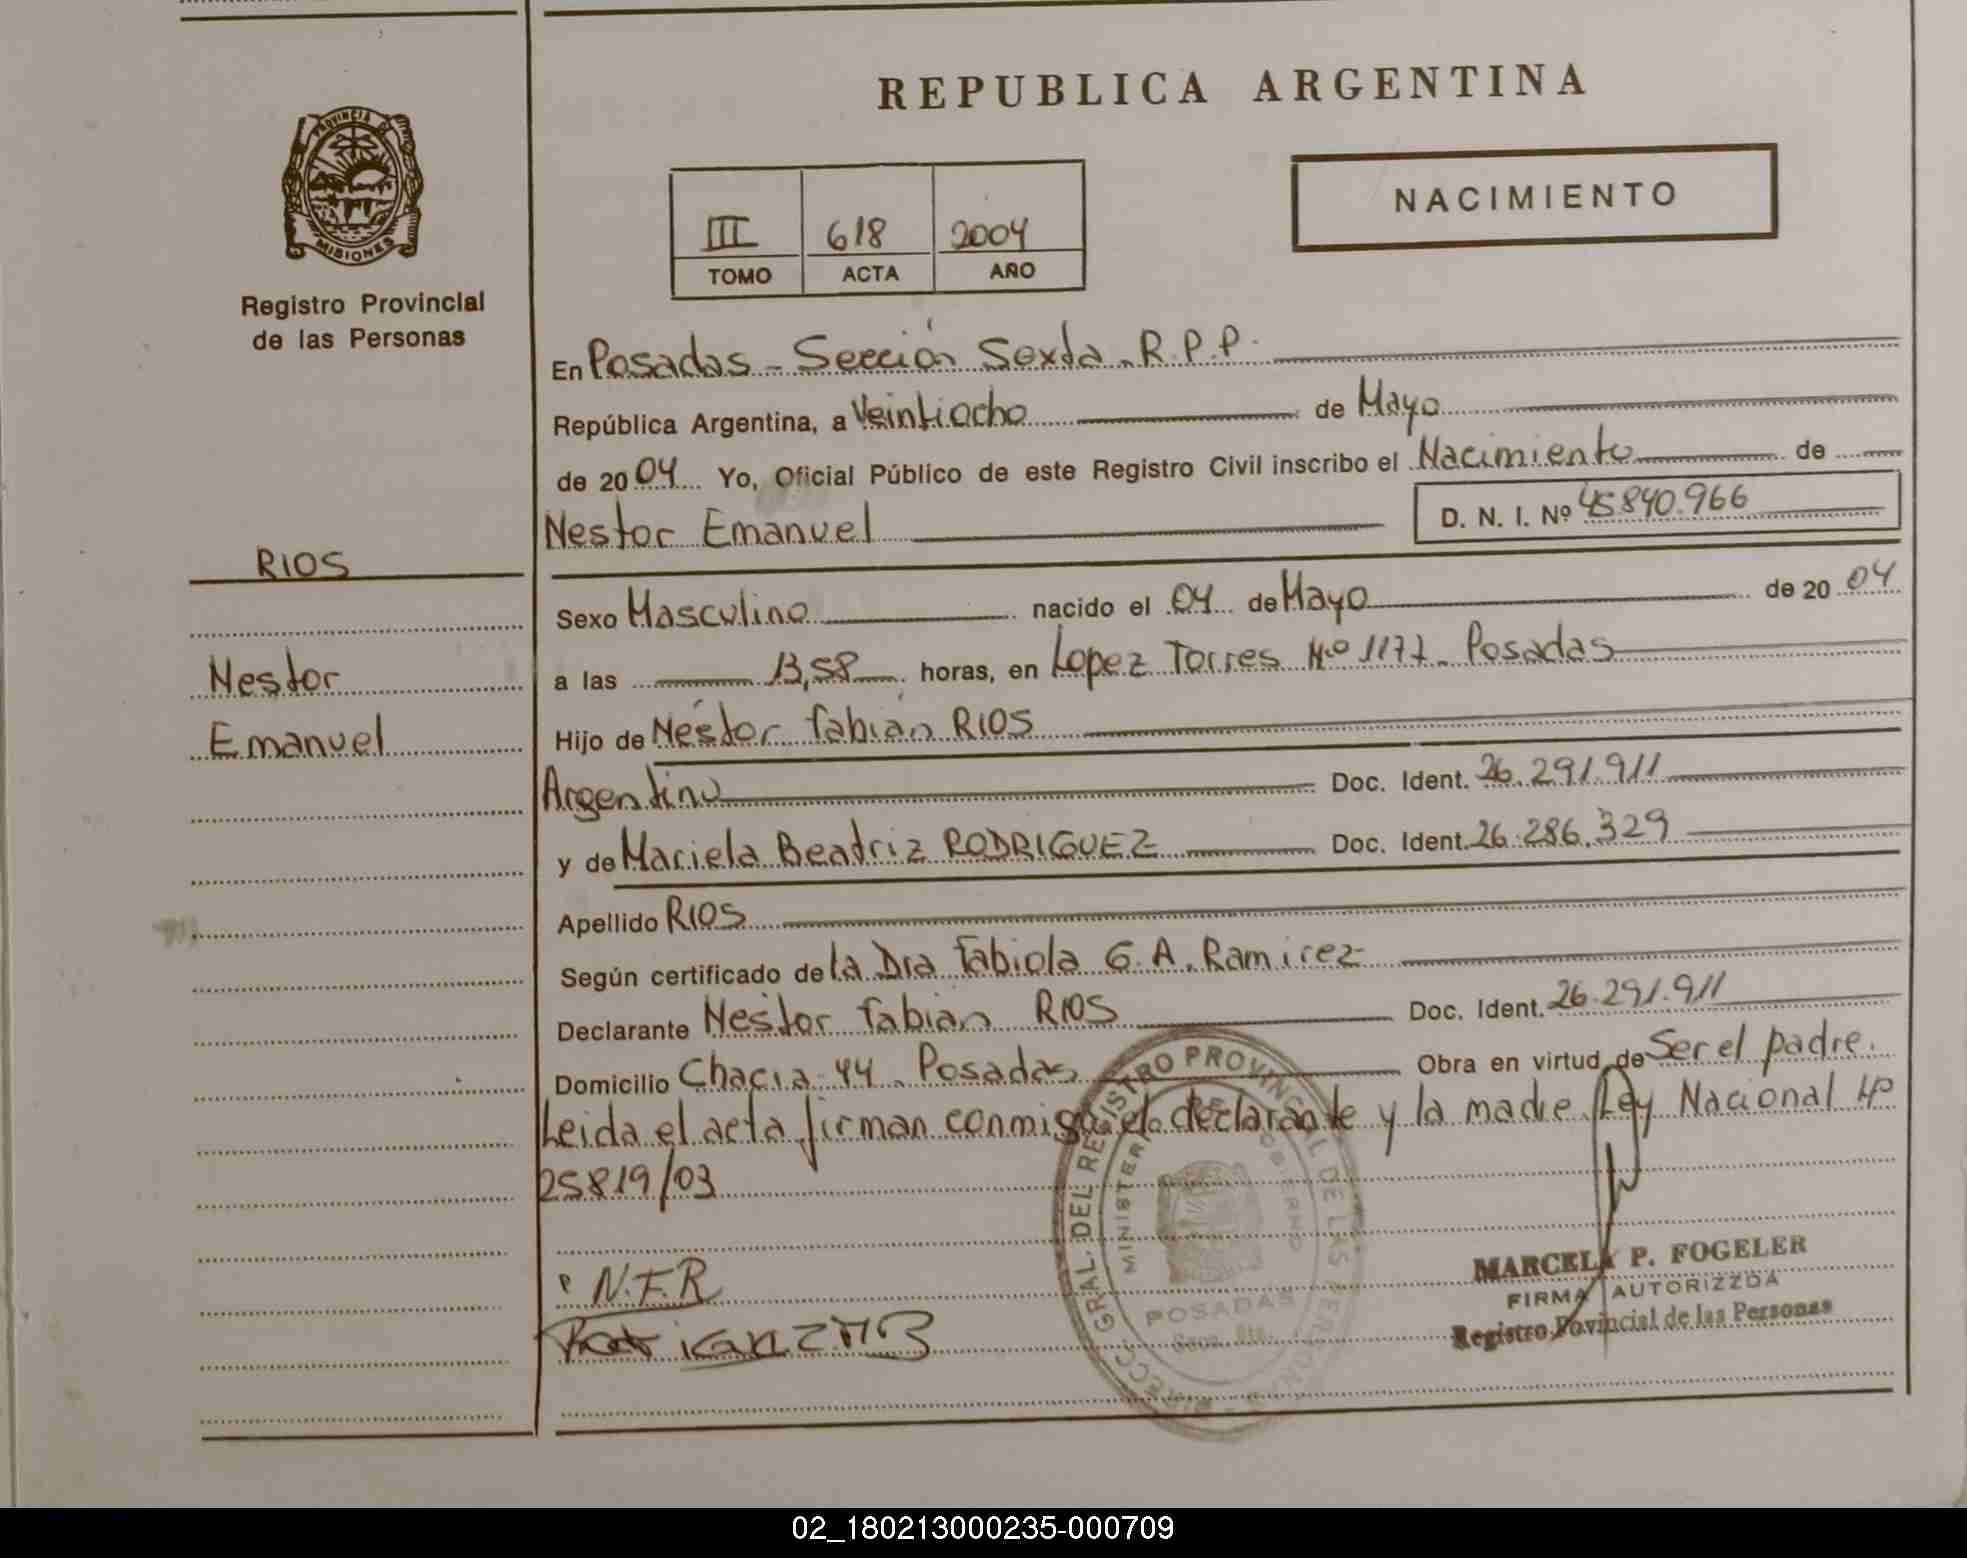 REPUBLICA ARGENTINA
PROVINCIA DE
MISIONES
Registro Provincial
de las Personas
III 618 2004
TOMO ACTA AÑO
NACIMIENTO
En Posadas - Sección Sexta. R.P.P.
República Argentina, a Veintiocho de Mayo
de 2004 Yo, Oficial Público de este Registro Civil inscribo el Nacimiento de
Nestor Emanuel D. N. I. Nº 45840.966
RIOS
Nestor
Emanuel
Sexo Masculino nacido el 04 de Mayo de 2004
a las 13,58 horas, en Lopez Torres Nº 1177. Posadas
Hijo de Néstor Fabián RIOS
Argentino Doc. Ident. 26.291.911
y de Mariela Beatriz RODRIGUEZ Doc. Ident. 26.286.329
Apellido RIOS
Según certificado de la Dra Fabiola G.A. Ramirez
Declarante Nestor Fabián RIOS Doc. Ident. 26.291.911
Domicilio Chacra 44. Posadas Obra en virtud de Ser el padre.
Leida el acta firman conmigo el declarante y la madre. Ley Nacional Nº
25819/03
N.F.R
DIRECC. GRAL. DEL REGISTRO PROVINCIAL DE LAS PERSONAS
MINISTERIO DE GOBIERNO
POSADAS
MARCELA P. FOGELER
FIRMA AUTORIZZDA
Registro Povincial de las Personas
02_180213000235-000709